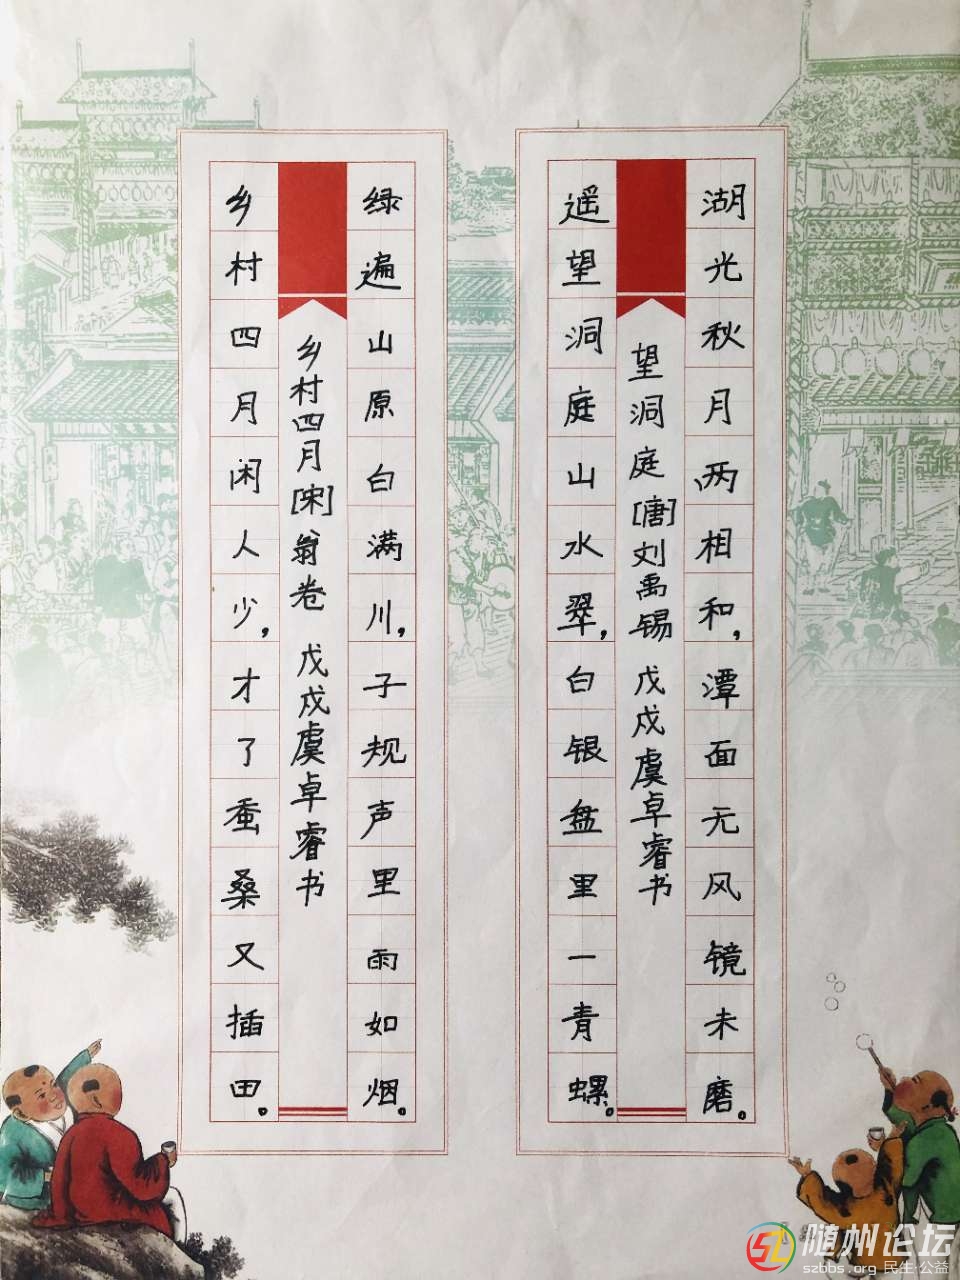 湖光秋月两相和,潭面无风镜未磨。
望洞庭[唐]刘禹锡 戊戍虞卓睿书
遥望洞庭山水翠,白银盘里一青螺。
绿遍山原白满川,子规声里雨如烟。
乡村四月[宋]翁卷 戊戍虞卓睿书
乡村四月闲人少,才了蚕桑又插田。
随州论坛
szbbs.org 民生·公益